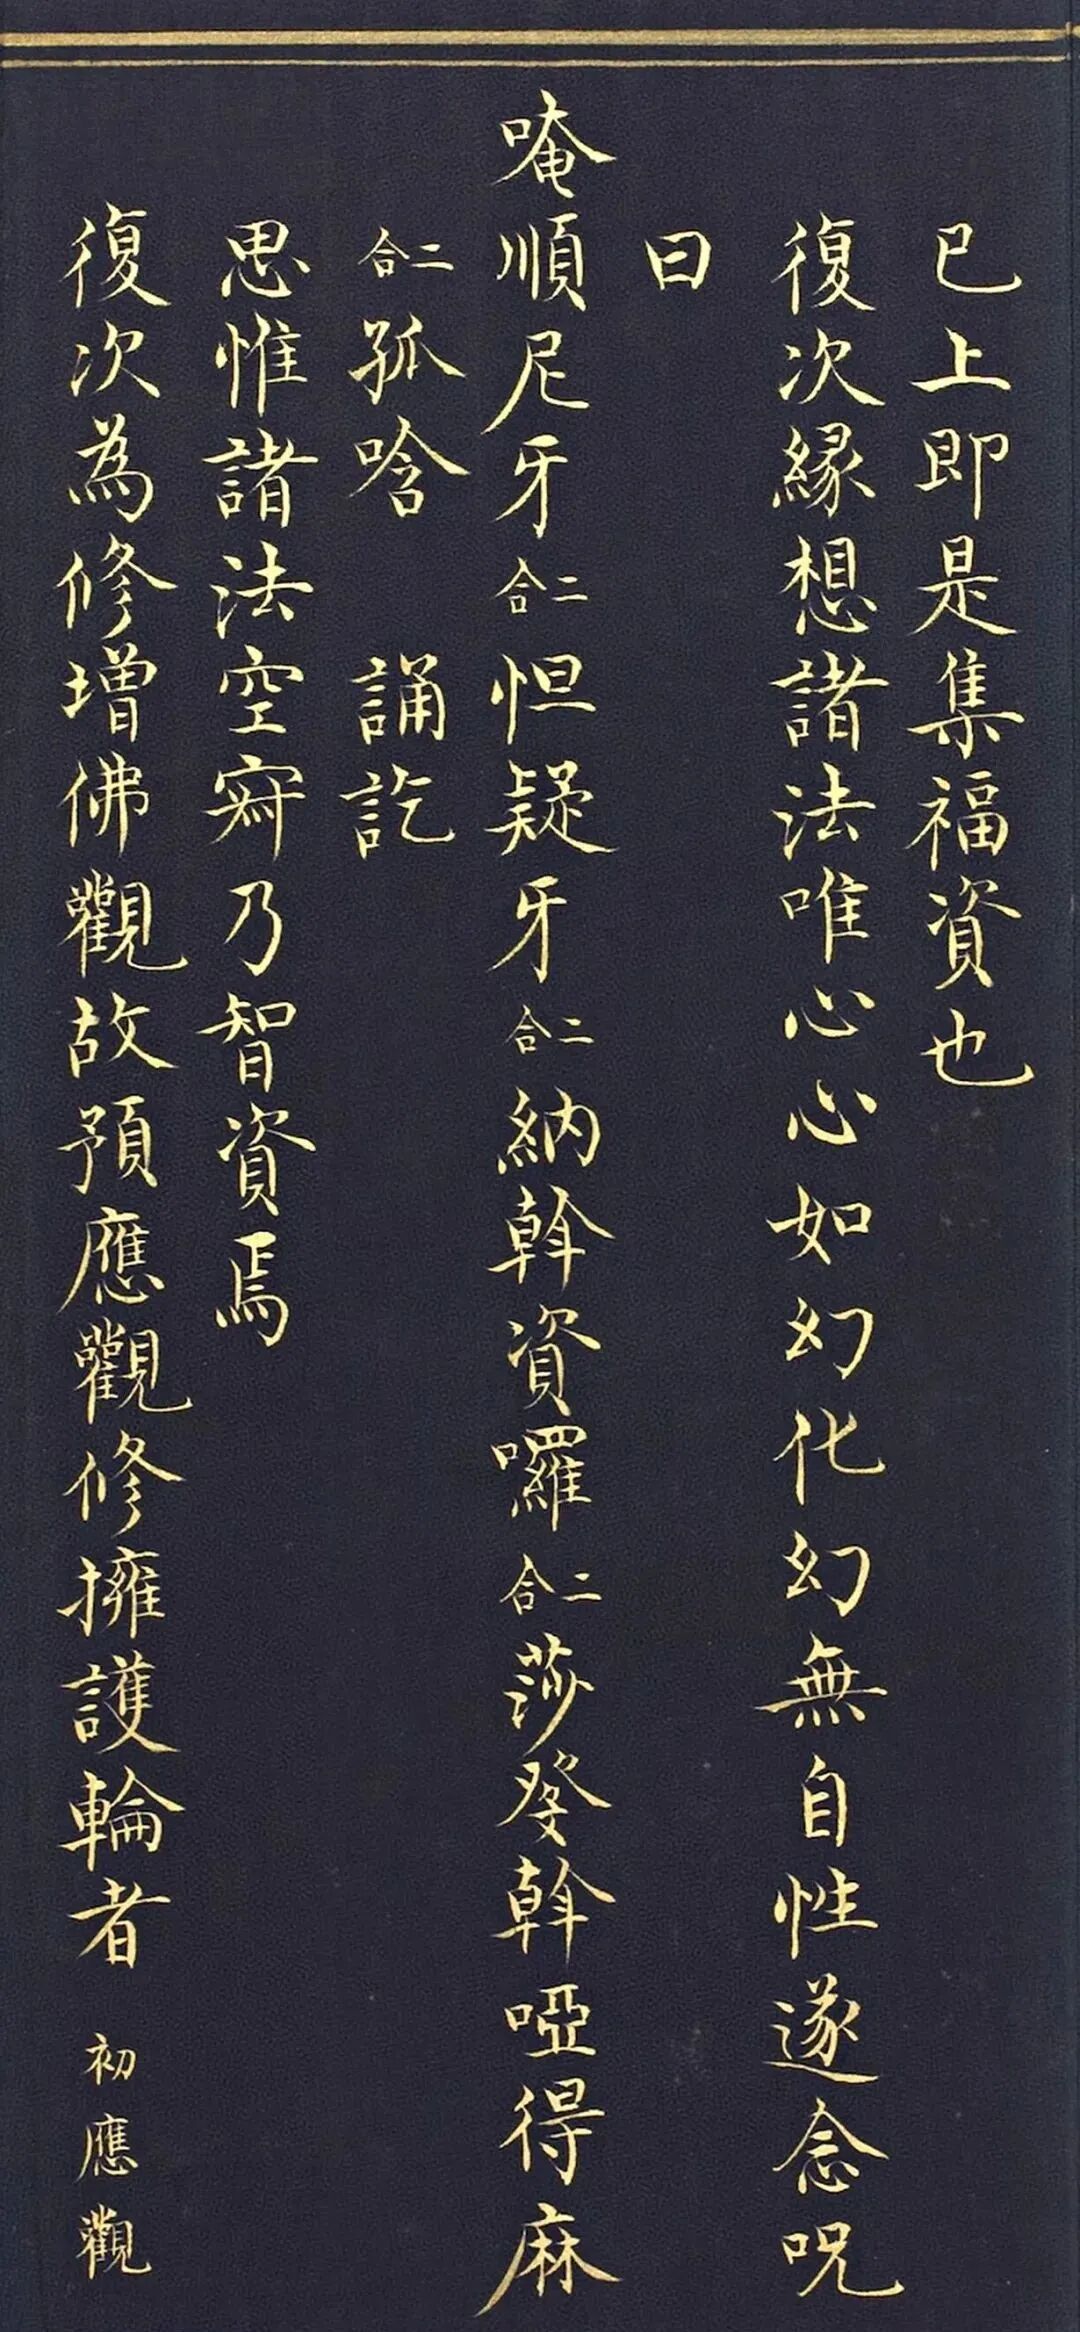 已上即是集福資也
復次緣想諸法唯心心如幻化幻無自性遂念呪
曰
唵順尼牙二合怛疑牙二合納斡資囉二合莎癹斡啞得麻
二合孤唅　誦訖
思惟諸法空寂乃智資焉
復次為修增佛觀故預應觀修擁護輪者 初應觀